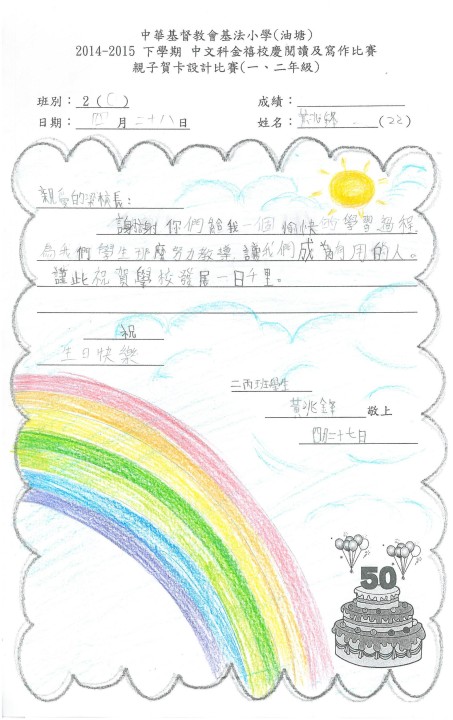 中華基督教會基法小學(油塘)
2014-2015 下學期 中文科金禧校慶閱讀及寫作比賽
親子賀卡設計比賽(一、二年級)
班別： 2 ( C ) 成績：
日期： 四 月 二十八 日 姓名： 黃兆鋒 (22)
親愛的梁校長：
謝謝你們給我一個愉快的學習過程,
為我們學生那麼努力教導,讓我們成為有用的人。
謹此祝賀學校發展一日千里。
祝
生日快樂
二丙班學生
黃兆鋒 敬上
四月二十七日
50